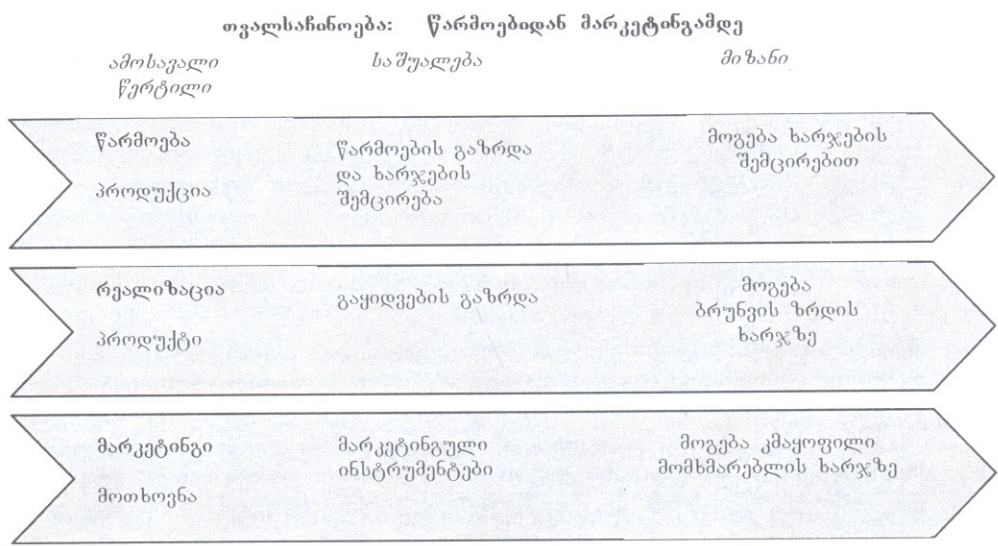 თვალსაჩინოება: წარმოებიდან მარკეტინგამდე
ამოსავალი წერტილი
საშუალება
მიზანი
წარმოება
პროდუქცია
წარმოების გაზრდა
და ხარჯების
შემცირება
მოგება ხარჯების
შემცირებით
რეალიზაცია
პროდუქტი
გაყიდვების გაზრდა
მოგება
ბრუნვის ზრდის
ხარჯზე
მარკეტინგი
მოთხოვნა
მარკეტინგული
ინსტრუმენტები
მოგება კმაყოფილი
მომხმარებლის ხარჯზე